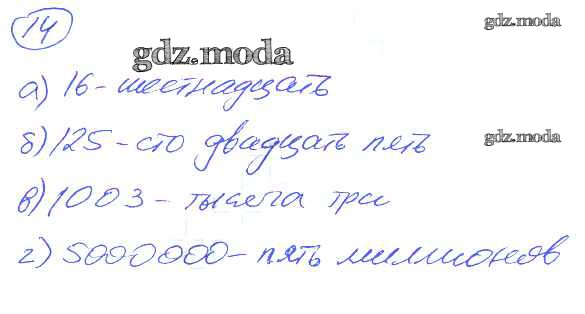 14
gdz.moda
gdz.moda
а) 16 - шестнадцать
б) 125 - сто двадцать пять
gdz.moda
в) 1003 - тысяча три
г) 5000000 - пять миллионов